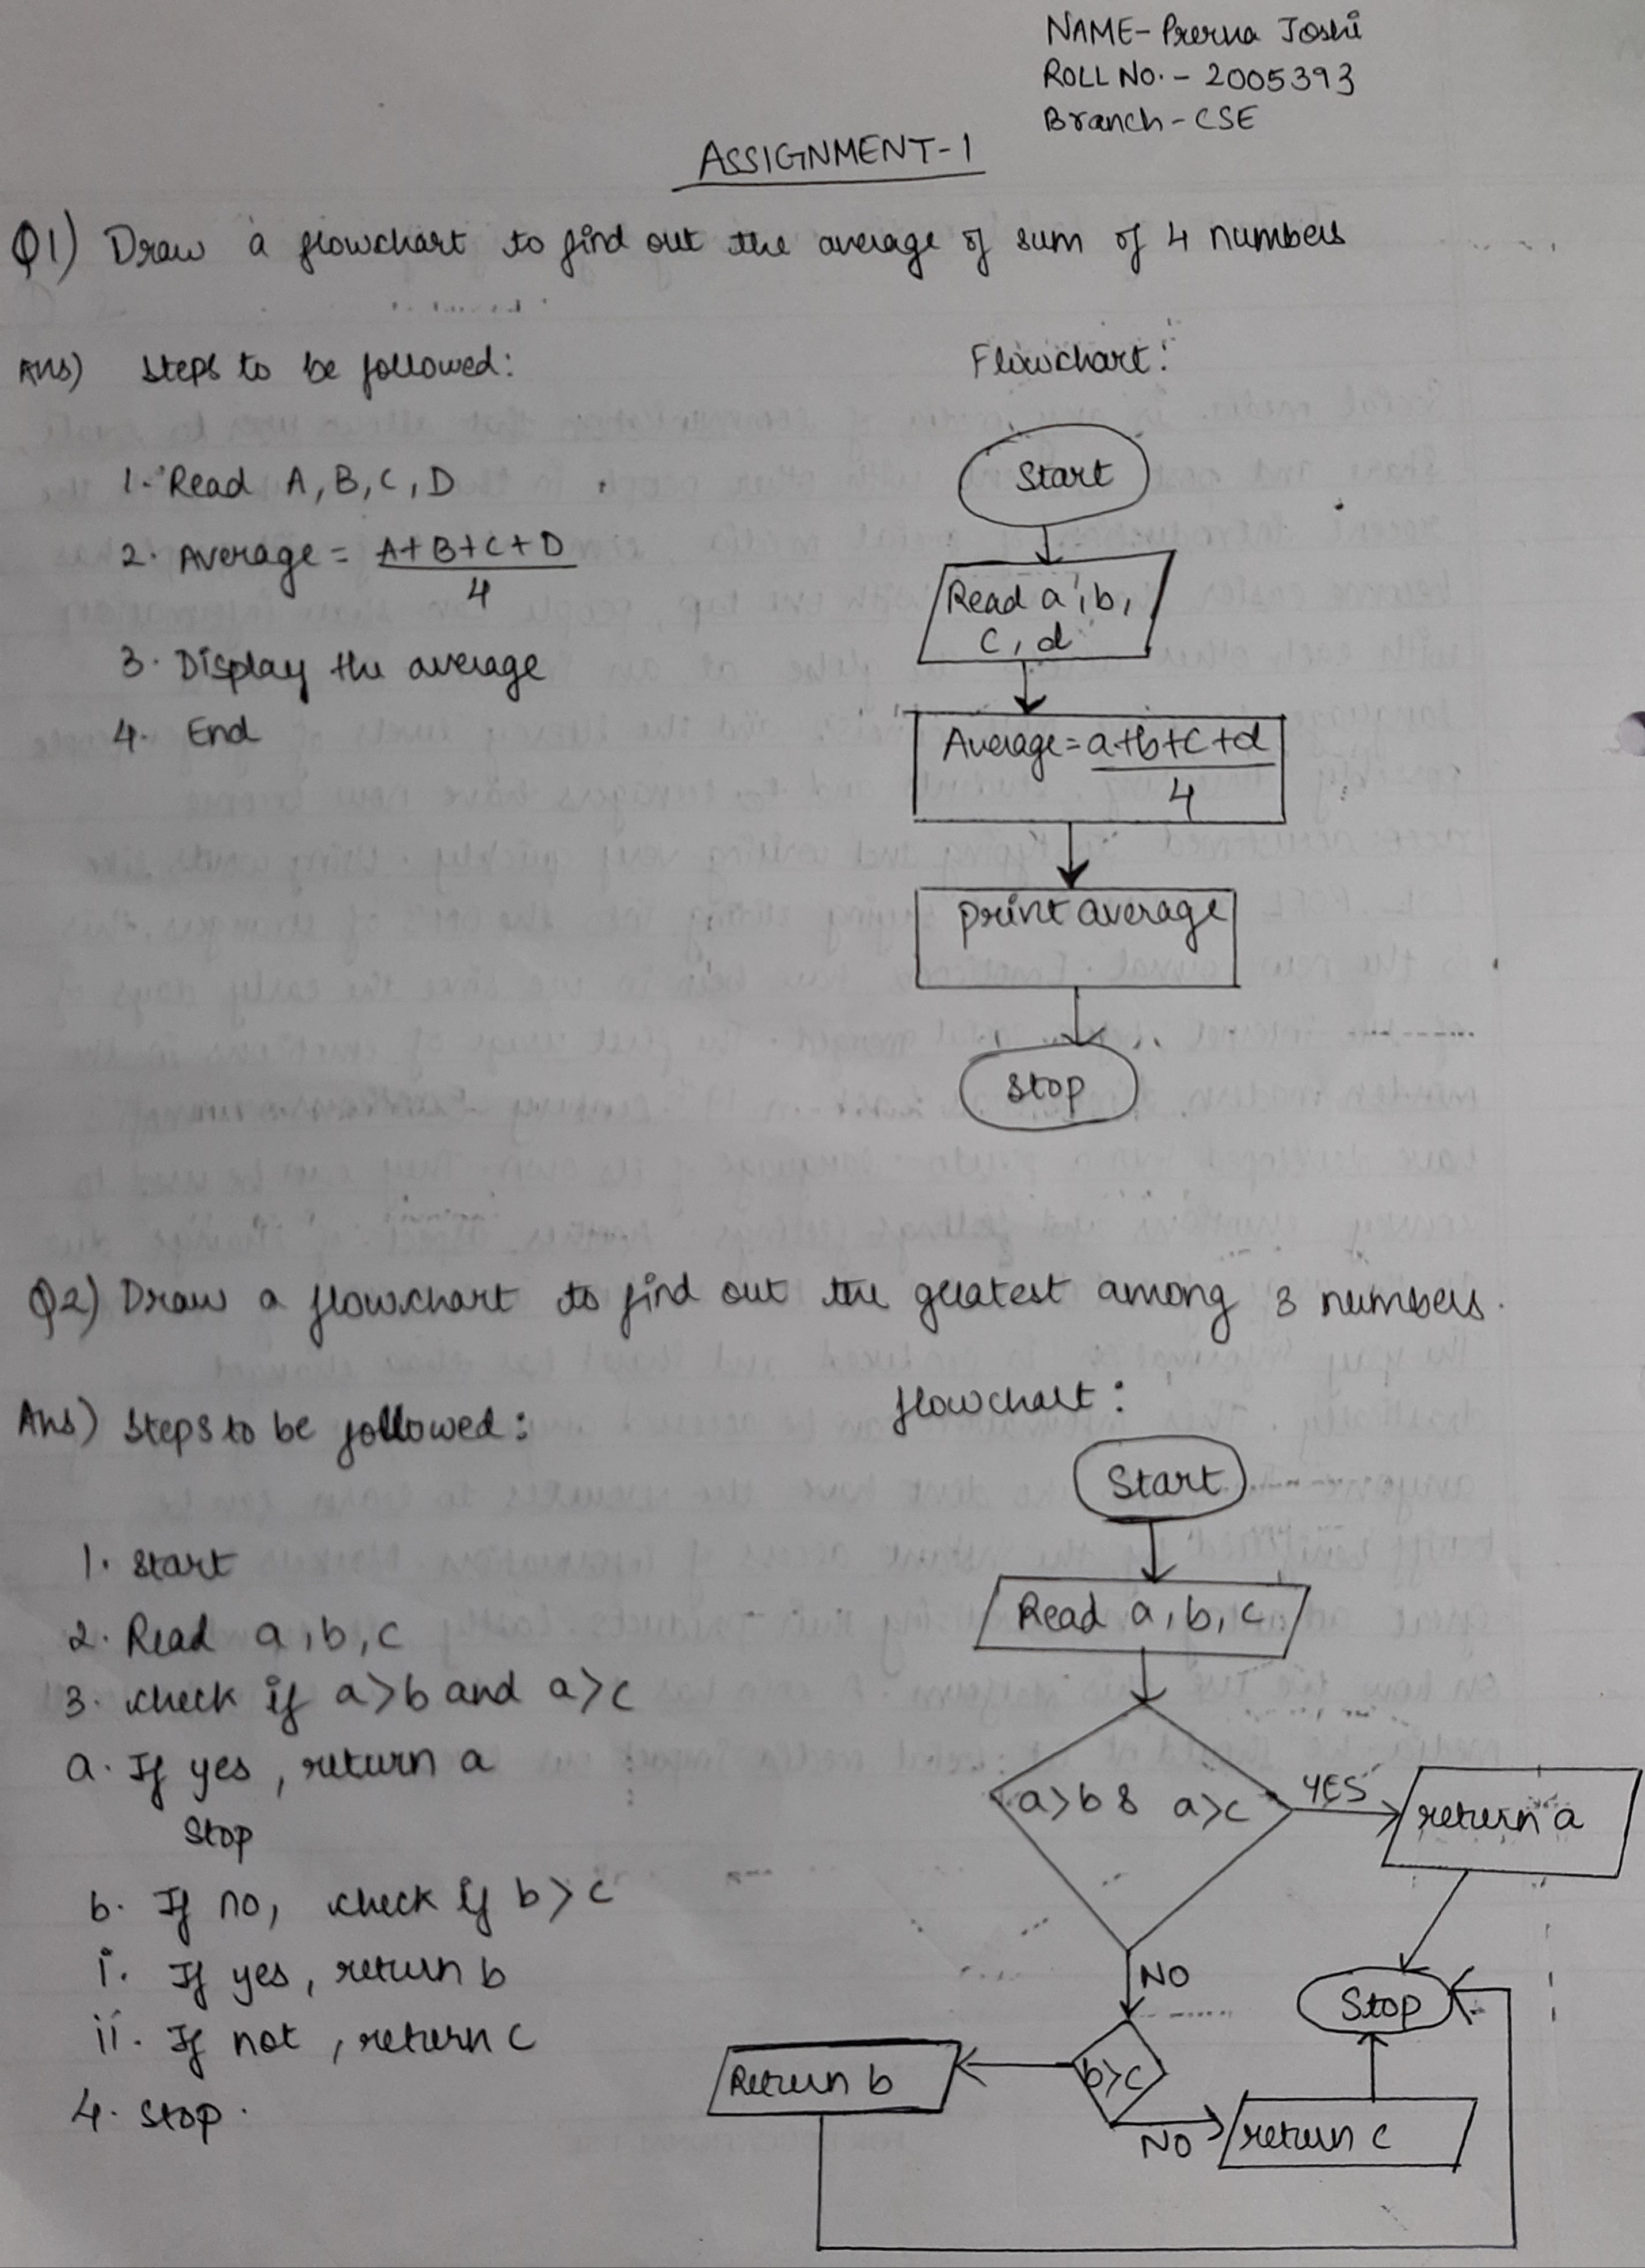 NAME- Prerna Joshi
ROLL NO. - 2005393
Branch - CSE
ASSIGNMENT-1
Q1) Draw a flowchart to find out the average of sum of 4 numbers
Ans) Steps to be followed:
1. Read A, B, C, D
2. Average = A+B+C+D
4
3. Display the average
4. End
Flowchart:
Start
Read a, b,
c, d
Average = a+b+c+d
4
print average
Stop
Q2) Draw a flowchart to find out the greatest among 3 numbers.
Ans) Steps to be followed:
1. Start
2. Read a, b, c
3. check if a>b and a>c
a. If yes, return a
Stop
b. If no, check if b>c
i. If yes, return b
ii. If not, return c
4. Stop.
flowchart:
Start
Read a, b, c
a>b & a>c
YES
return a
NO
Stop
b>c
Return b
NO
return c